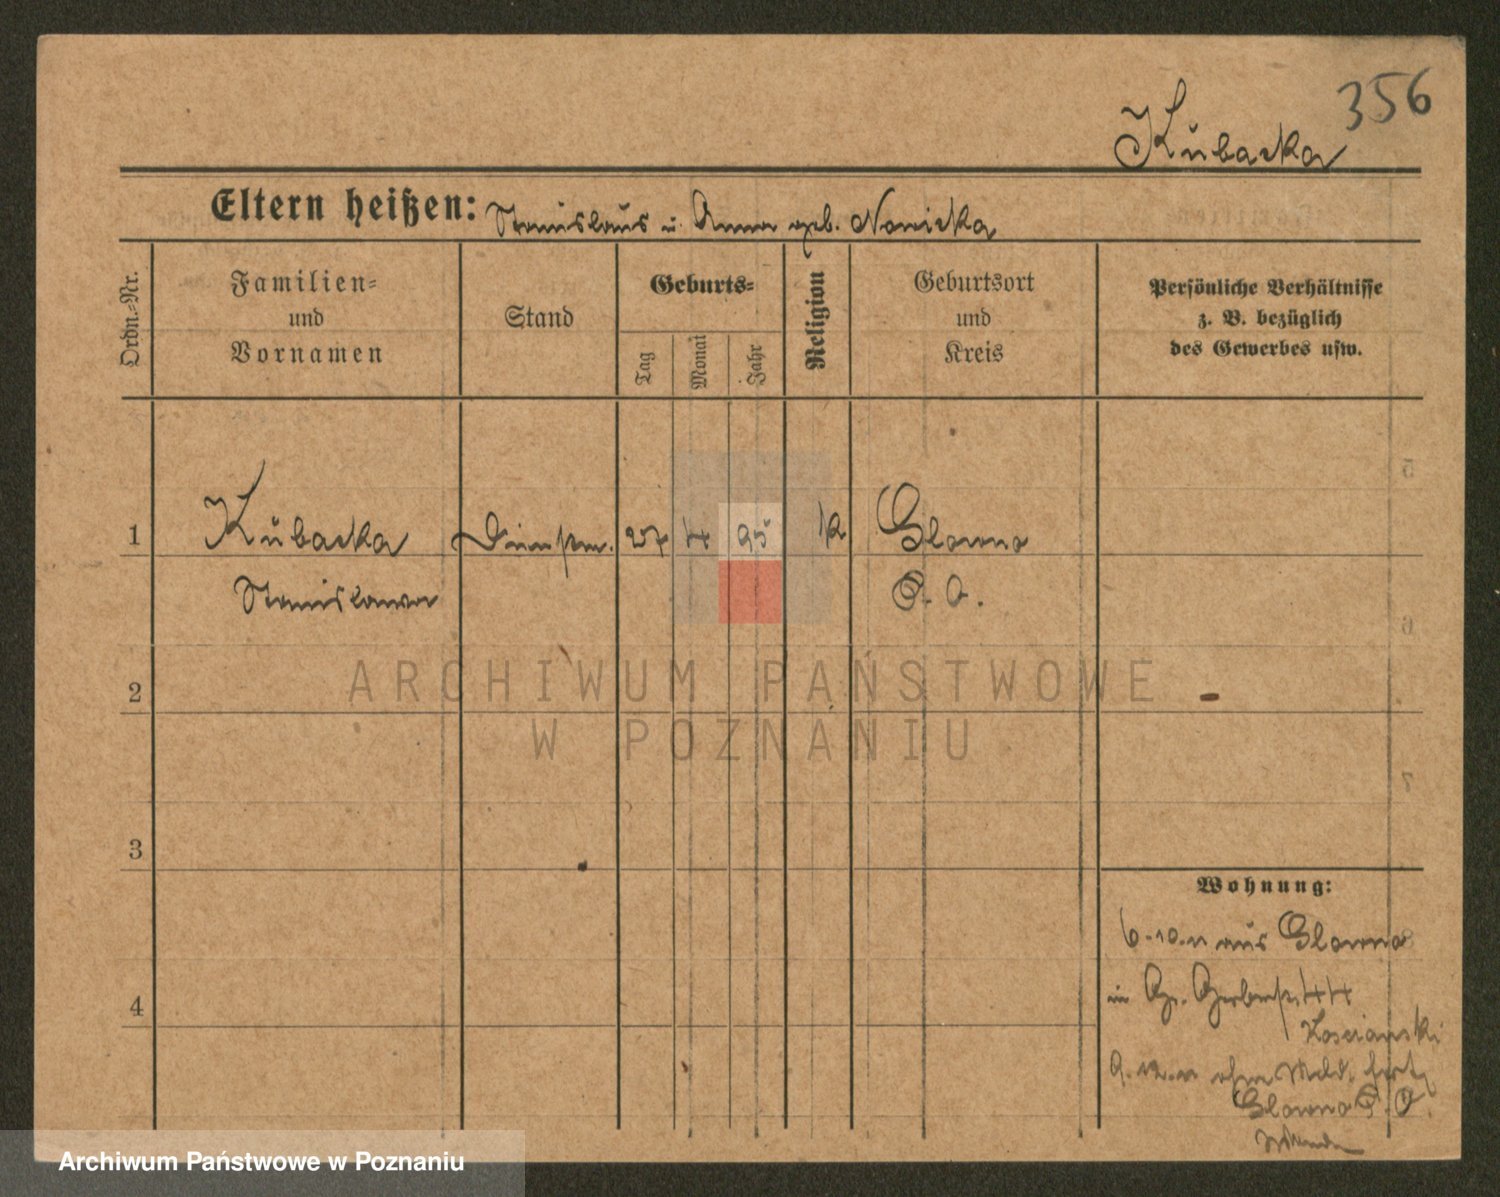 356
Kubacka
Eltern heißen: Stanislaus u. Anna geb. Nowicka
Ordn.=Nr.
Familien=
und
Vornamen
Stand
Geburts=
Tag
Monat
Jahr
Religion
Geburtsort
und
Kreis
Persönliche Verhältnisse
z. B. bezüglich
des Gewerbes usw.
1 Kubacka 27 4 95 k Glowno
Stanislawa P. O.
2
3
4
5
6
7
ARCHIWUM PAŃSTWOWE
W POZNANIU
Wohnung:
6.10.11 aus Glowno
in Gr. Gerberstr. 44
Koscianski
9.12.11 ohne Meld. fort
Glowno P. O.
Archiwum Państwowe w Poznaniu